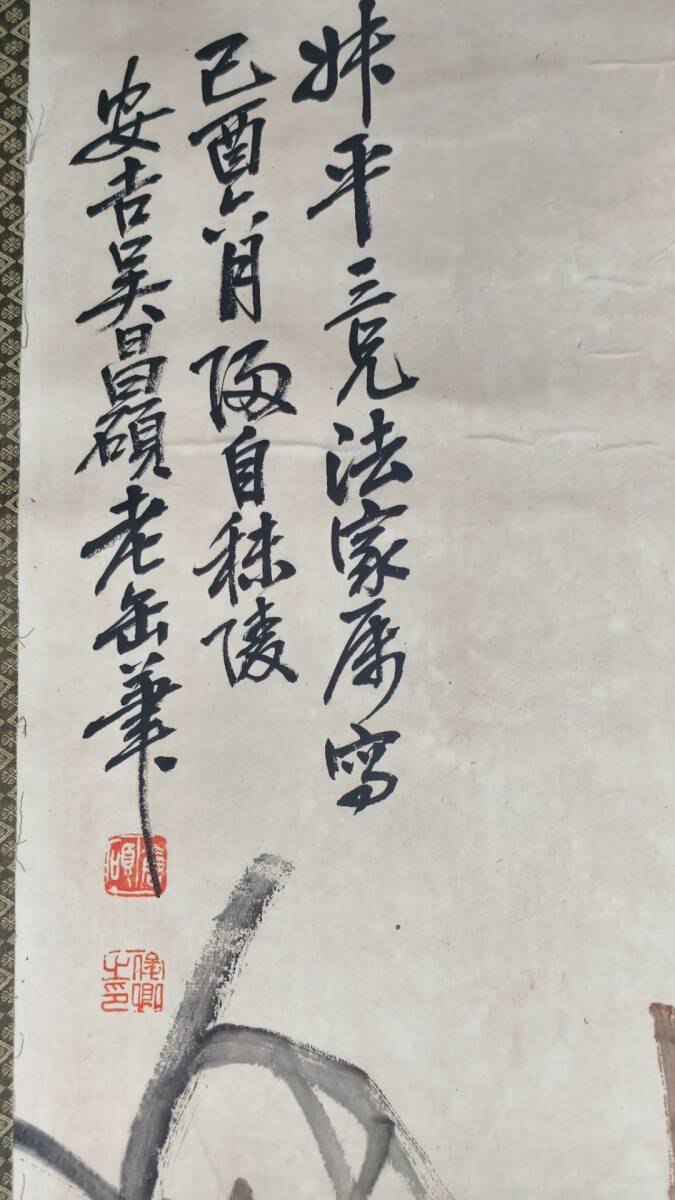 平三兄法家属写
己酉六月归自秣陵
安吉吴昌碩老缶筆
俊卿之印